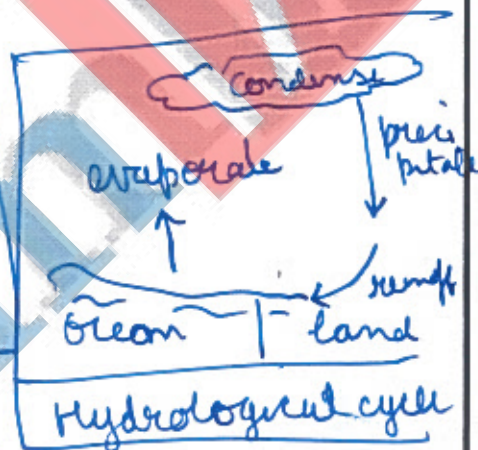 condense
evaporate
preci
pitate
runoff
Ocean
land
Hydrological cycle